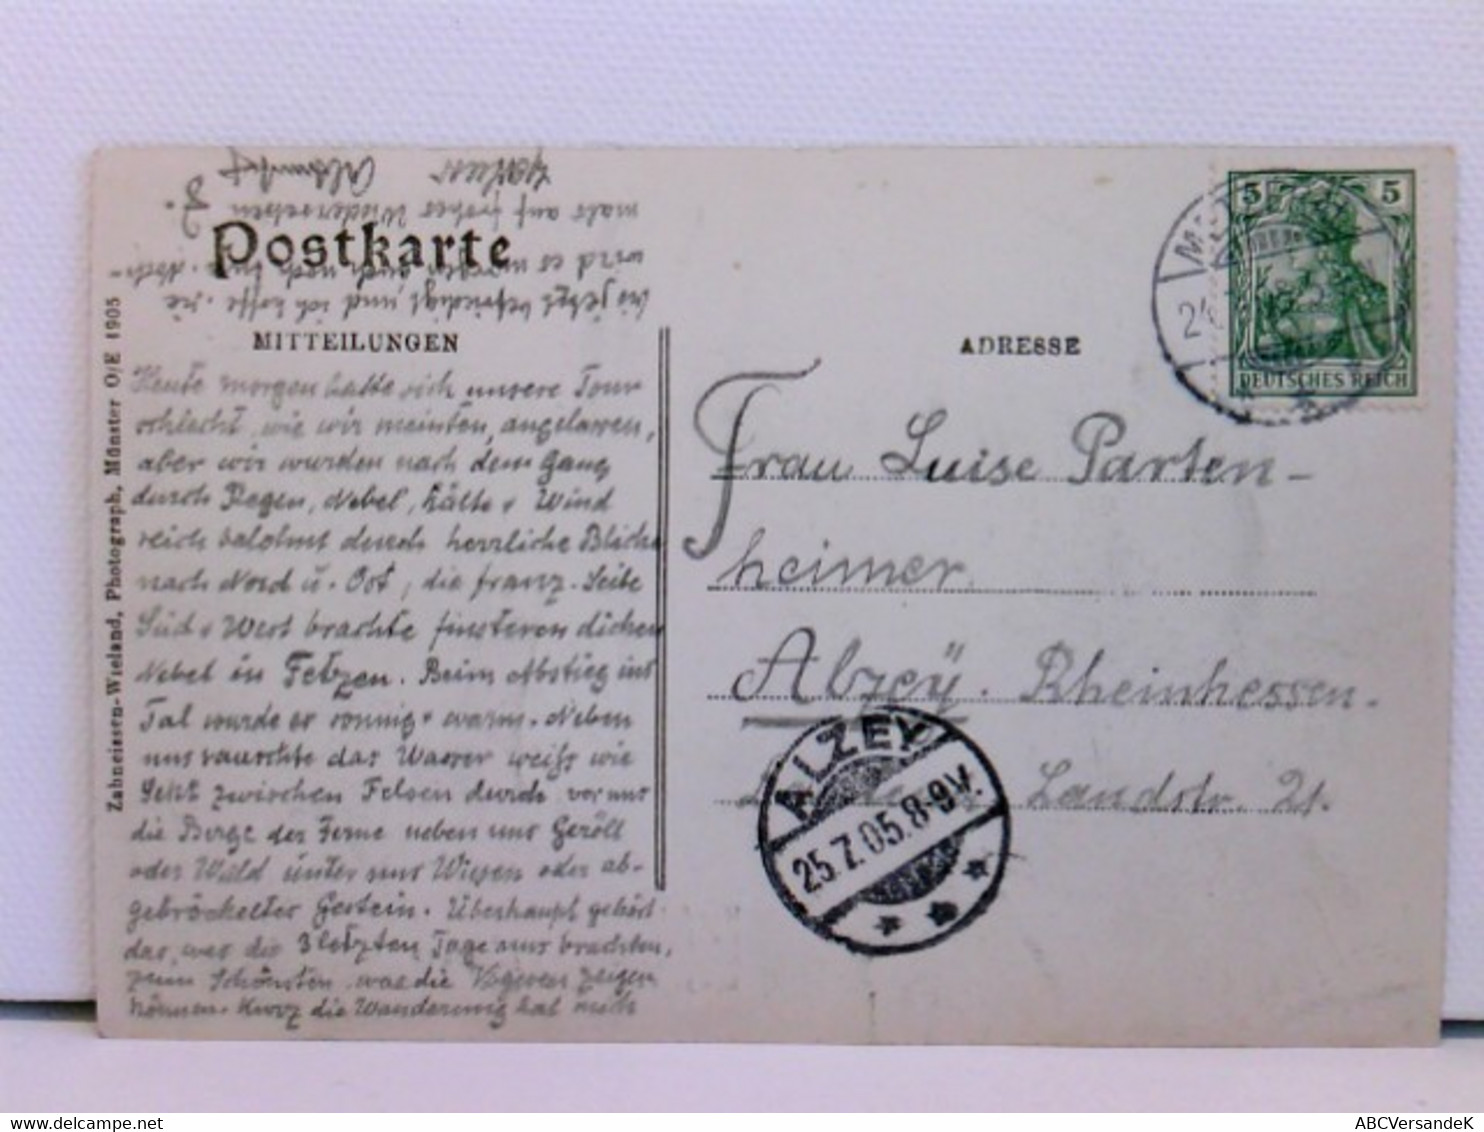 Postkarte
MITTEILUNGEN
ADRESSE
Zahneissen-Wieland, Photograph, Münster O/E 1905
Heute morgen hatte sich unsere Tour
schlecht, wie wir meinten, angelassen,
aber wir wurden nach dem Gang
durch Regen, Nebel, Kälte + Wind
reich belohnt durch herrliche Blicke
nach Nord u. Ost, die franz. Seite
Süd + West brachte finsteren dichen
Nebel in Fetzen. Beim Abstieg ins
Tal wurde es sonnig + warm. Neben
uns rauschte das Wasser weiss wie
Sekt zwischen Felsen durch vor uns
die Berge der Ferne neben uns Geröll
oder Wald unter uns Wiesen oder ab-
gebröckelter Gestein. Überhaupt gehört
das, was die 3 letzten Tage uns brachten,
zum Schönsten, was die Vogesen zeigen
können. Kurz die Wanderung hat mich
bis jetzt befriedigt und ich hoffe, sie
wird es morgen auch noch tun. Noch-
mals auf frohes Wiedersehen
5 5
DEUTSCHES REICH
Frau Luise Parten-
heimer
Alzey. Rheinhessen.
Landstr. 21.
ALZEY
25.7.05.8-9V.
ABCVersandeK